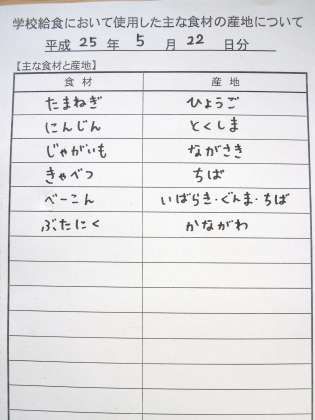 学校給食において使用した主な食材の産地について
平成 25 年 5 月 22 日分
【主な食材と産地】
食材 産地
たまねぎ ひょうご
にんじん とくしま
じゃがいも ながさき
きゃべつ ちば
べーこん いばらき・ぐんま・ちば
ぶたにく かながわ